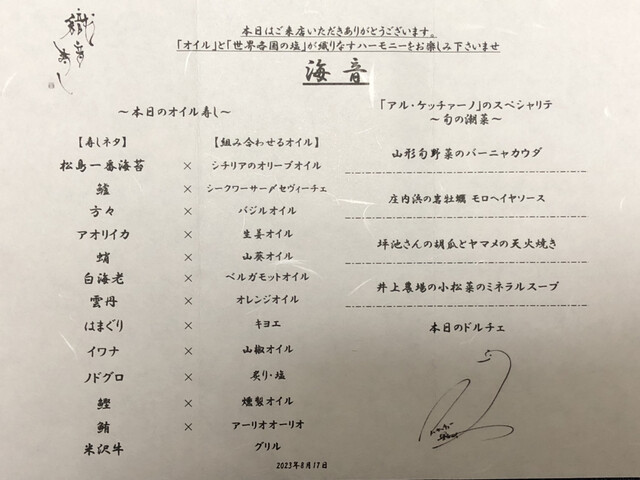 本日はご来店いただきありがとうございます。
「オイル」と「世界各国の塩」が織りなすハーモニーをお楽しみ下さいませ
海音
～本日のオイル寿し～
【寿しネタ】 【組み合わせるオイル】
松島一番海苔 × シチリアのオリーブオイル
鱸 × シークワーサー〆セヴィーチェ
方々 × バジルオイル
アオリイカ × 生姜オイル
蛸 × 山葵オイル
白海老 × ベルガモットオイル
雲丹 × オレンジオイル
はまぐり × キヨエ
イワナ × 山椒オイル
ノドグロ × 炙り・塩
鰹 × 燻製オイル
鮪 × アーリオオーリオ
米沢牛 グリル
「アル・ケッチァーノ」のスペシャリテ
～旬の潮菜～
山形旬野菜のバーニャカウダ
庄内浜の岩牡蠣 モロヘイヤソース
坪池さんの胡瓜とヤマメの天火焼き
井上農場の小松菜のミネラルスープ
本日のドルチェ
2023年8月17日